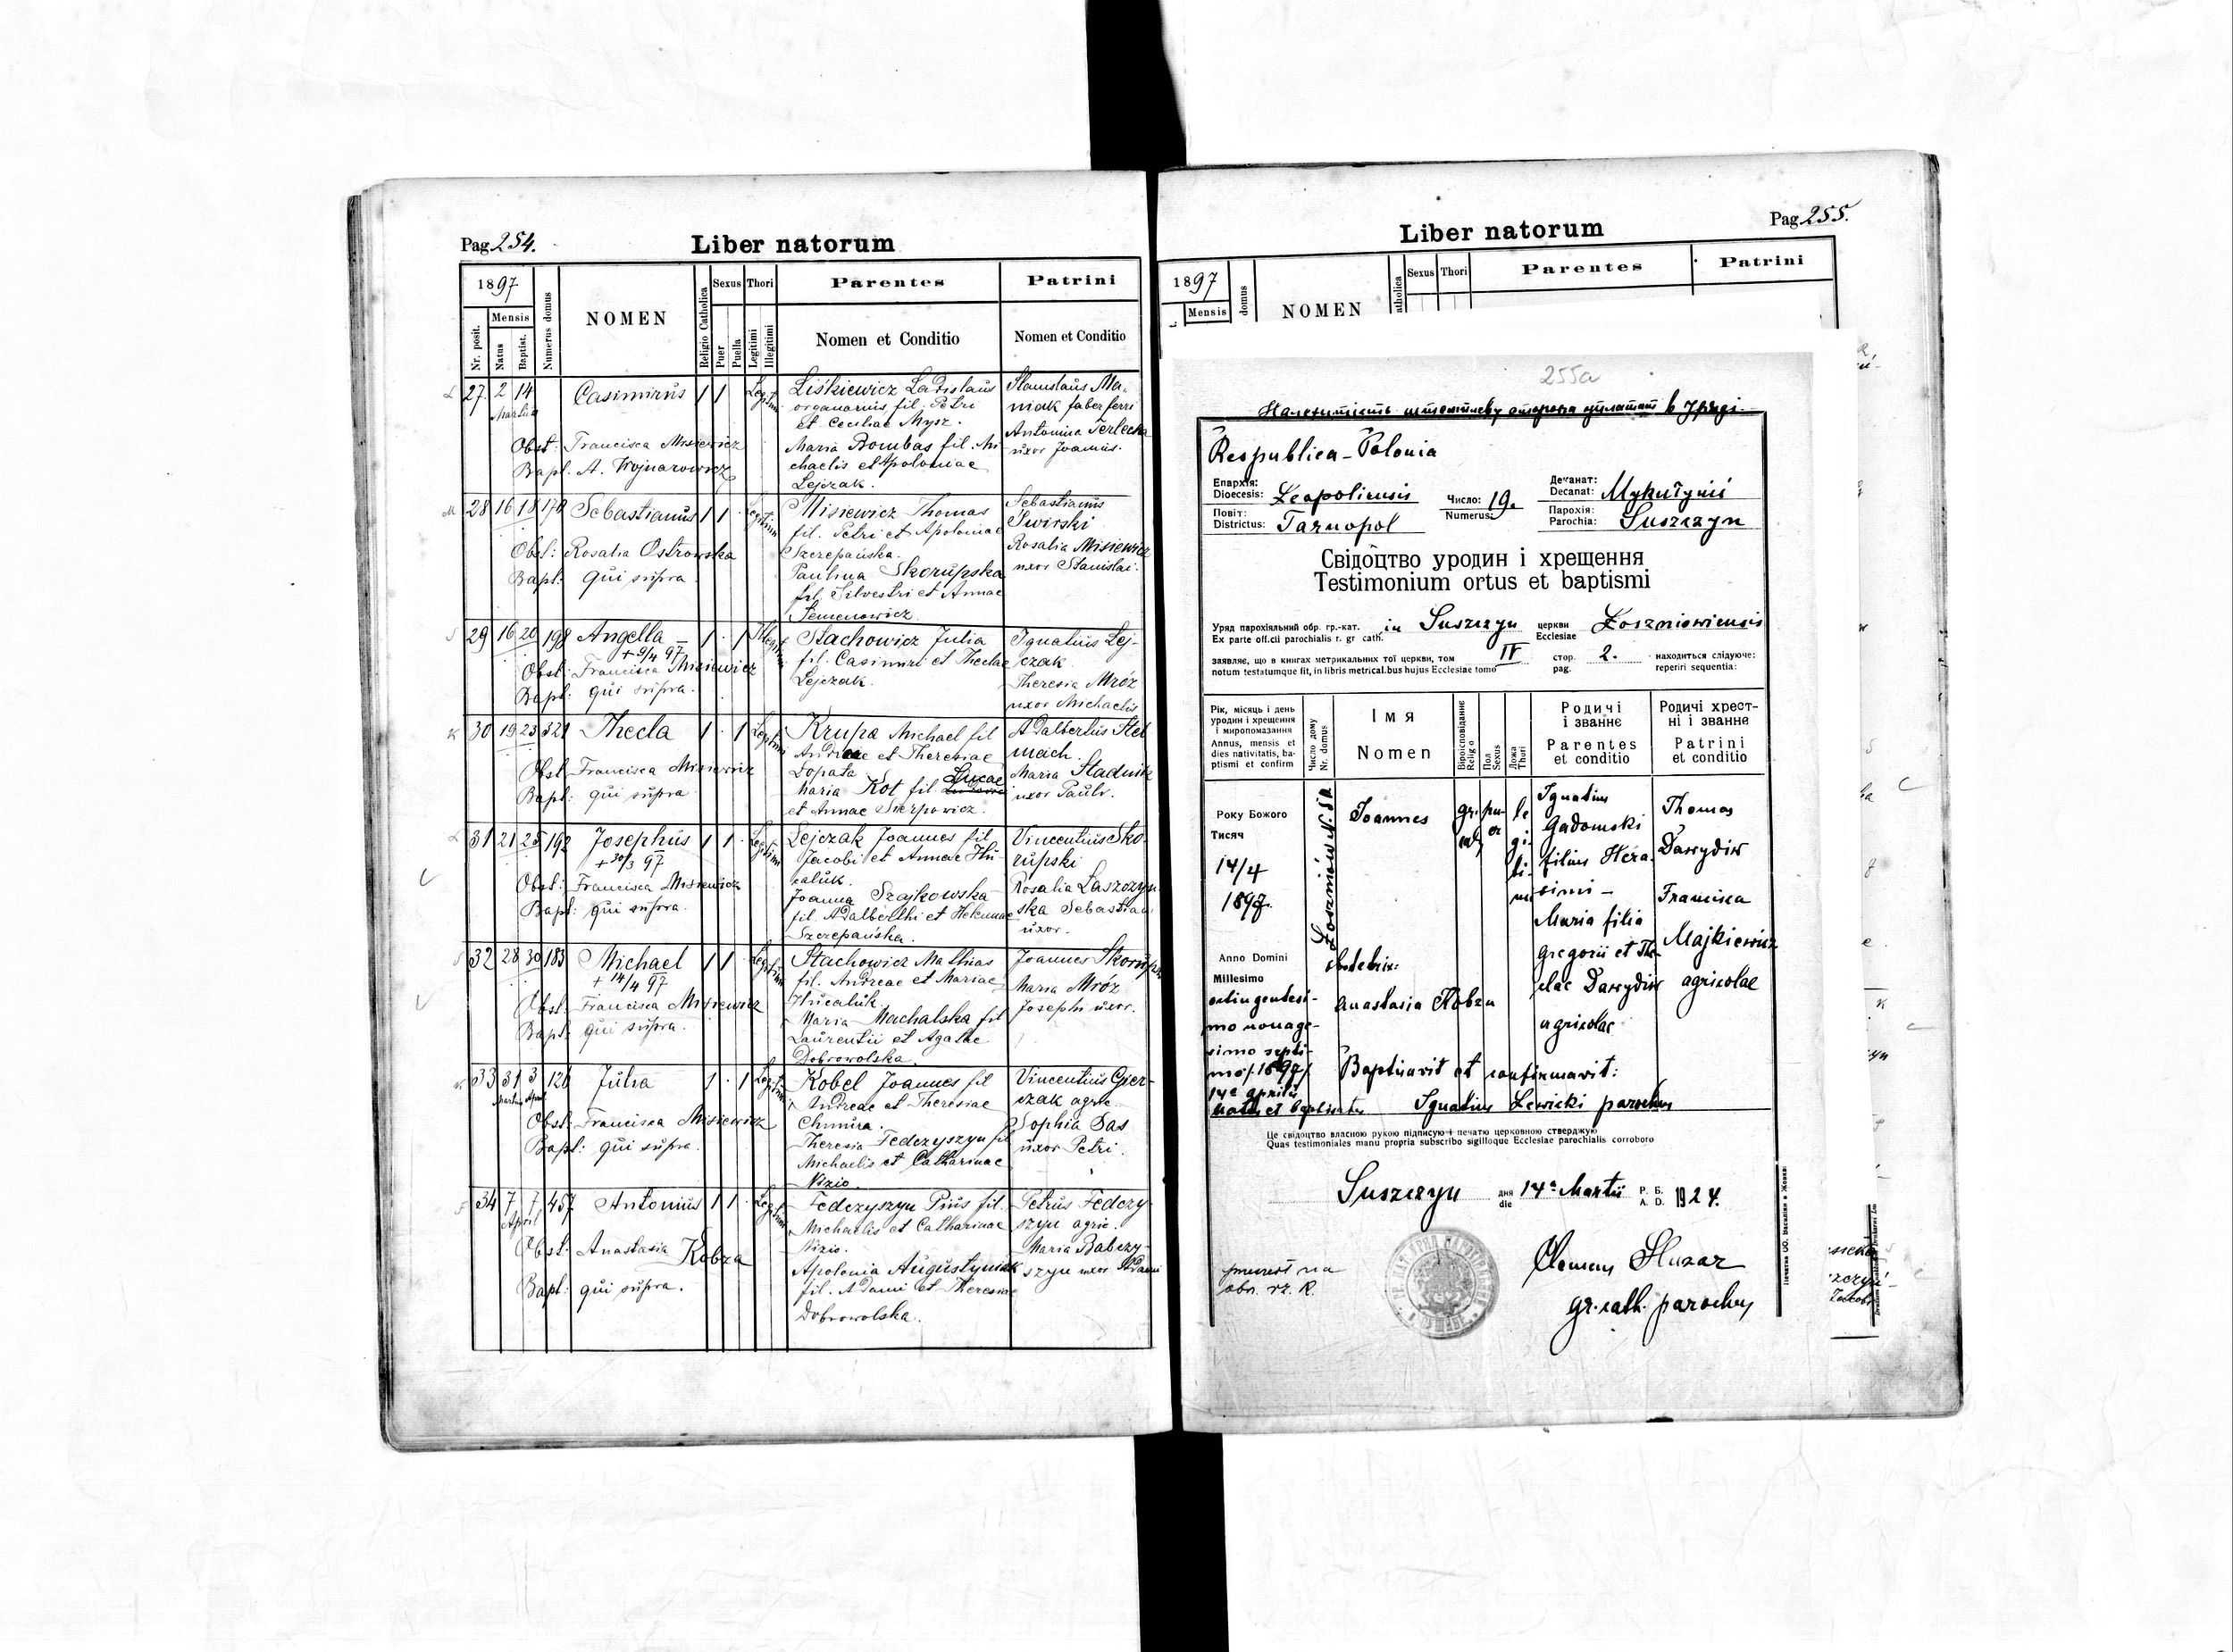 Pag 254.
Liber natorum
1897
Mensis
Nr. posit.
Natus
Baptist.
Numerus domus
NOMEN
Religio Catholica
Sexus
Puer
Puella
Thori
Legitimi
Illegitimi
Parentes
Nomen et Conditio
Patrini
Nomen et Conditio
27 2 14 Casimirus 1 1 Legitimi
Martii
Obst: Francisca Misiewicz
Bapt. A. Wojnarowicz
Liśkiewicz Ladislaus
organarius fil. Petri
et Ceciliae Mysz.
Maria Bombas fil. Mi
chaelis et Apoloniae
Lejczak.
Stanislaus Ma-
niak faber ferri
Antonina Terlecka
uxor Joannis.
28 16 18 174 Sebastianus 1 1 Legitimi
Obst: Rosalia Ostrowska
Bapt: qui supra
Misiewicz Thomas
fil. Petri et Apoloniae
Szczepańska.
Paulina Skorupska
fil. Silvestri et Annae
Semenowicz.
Sebastianus
Swirski
Rosalia Misiewicz
uxor Stanislai.
29 16 20 198 Angella 1 . 1 Illegitimi
+ 9/4 97
Obst: Francisca Misiewicz
Bapt: qui supra.
Stachowicz Julia
fil. Casimiri et Theclae
Lejczak.
Ignatius Lej-
czak
Theresia Mróz
uxor Michaelis
30 19 23 321 Thecla 1 . 1 Legitimi
Obst Francisca Misiewicz
Bapt: qui supra
Krupa Michael fil
Andreae et Theresiae
Lopata
Maria Kot fil Lucae
et Annae Sierpowicz.
Adalbertus Stel
mach.
Maria Stadnik
uxor Pauli.
31 21 25 192 Josephus 1 1 . Legitimi
+ 30/3 97
Obst: Francisca Misiewicz
Bapt: qui supra.
Lejczak Joannes fil
Jacobi et Annae Hu-
caluk.
Joanna Szajkowska
fil. Adalberthi et Helenae
Szczepańska.
Vincentius Sko-
rupski
Rosalia Laszczyn
ska Sebastiani
uxor.
32 28 30 183 Michael 1 1 Legitimi
+ 14/4 97
Obst: Francisca Misiewicz
Bapt: qui supra.
Stachowicz Mathias
fil. Andreae et Mariae
Hucaluk.
Maria Machalska fil
Laurentii et Agathe
Dobrowolska.
Joannes Skorupski
Maria Mróz
Josephi uxor.
33 31 3 126 Julia 1 . 1 Legitimi
Martii April
Obst: Francisca Misiewicz
Bapt: qui supra.
Kobel Joannes fil
Andreae et Theresiae
Chmura.
Theresia Fedczyszyn fil
Michaelis et Catharinae
Nizio.
Vincentius Gier-
czak agric.
Sophia Sas
uxor Petri.
34 7 7 457 Antonius 1 1 . Legitimi
April
Obst: Anastasia Kobza
Bapt: qui supra.
Fedczyszyn Pius fil.
Michaelis et Catharinae
Nizio.
Apolonia Augustyniak
fil. Adami et Theresiae
Dobrowolska.
Petrus Fedczy
szyn agric.
Maria Babczy-
szyn uxor Adami
Liber natorum
Pag 255.
1897
Mensis
domus
NOMEN
atholica
Sexus
Thori
Parentes
Patrini
255a
Respublica - Polonia
Епархія:
Dioecesis: Leopoliensis
Число:
Numerus: 19.
Деканат:
Decanat: Mykulynci
Повіт:
Districtus: Tarnopol
Парохія:
Parochia: Suszczyn
Свідоцтво уродин і хрещення
Testimonium ortus et baptismi
Уряд парохіяльний обр. гр.-кат. in Suszczyn церкви Łoszniowiensis
Ex parte officii parochialis r. gr cath. Ecclesiae
заявляє, що в книгах метрикальних тої церкви, том IV стор. 2. находиться слідуюче:
notum testatumque fit, in libris metricalibus hujus Ecclesiae tomo pag. reperiri sequentia:
Рік, місяць і день
уродин і хрещення
і миропомазання
Annus, mensis et
dies nativitatis, ba-
ptismi et confirm
Число дому
Nr. domus
Імя
Nomen
Віроісповідання
Religio
Пол
Sexus
Ложа
Thori
Родичі
і званнє
Parentes
et conditio
Родичі хрест-
ні і званне
Patrini
et conditio
Року Божого
Тисяч
14/4
1897.
Anno Domini
Millesimo
octingentesi-
mo nonage-
simo septi-
mo /.1897/
14a aprilis
natus et baptisatus
Joannes
gr. cath
pu-
er
le
gi-
ti-
mi
Ignatius
Gadomski
filius Hera-
simi -
Maria filia
Gregorii et The-
clae Dawydiw
agricolae
Thomas
Dawydiw
Francisca
Majkiewicz
agricolae
obstetrix:
Anastasia Kobza
Baptisavit et confirmavit:
Ignatius Lewicki parochus
Це свідоцтво власною рукою підписую і печатю церковною стверджую
Quas testimoniales manu propria subscribo sigilloque Ecclesiae parochialis corroboro
Suszczyn дня 14a Martii Р. Б. 1924.
die A. D.
Clemens Sluzar
gr. cath. parochus